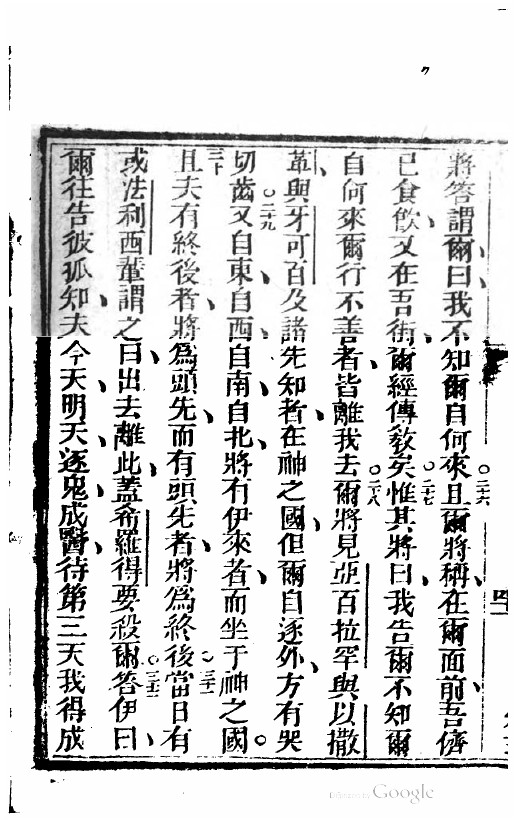 將答謂爾曰我不知爾自何來○二十六且爾將稱在爾面前吾儕
已食飲又在吾街爾經傳敎矣○二十七惟其將曰我告爾不知爾
自何來爾行不善者皆離我去○二十八爾將見亞百拉罕與以撒
革與牙可百及諸先知者在神之國但爾自逐外方有哭
切齒○二十九又自東自西自南自北將有伊來者而坐于神之國○
三十且夫有終後者將爲頭先而有頭先者將爲終後○三十一當日有
或法利西輩謂之曰出去離此蓋希羅得要殺爾○三十二答伊曰
爾往告彼狐知夫今天明天逐鬼成醫待第三天我得成
Google